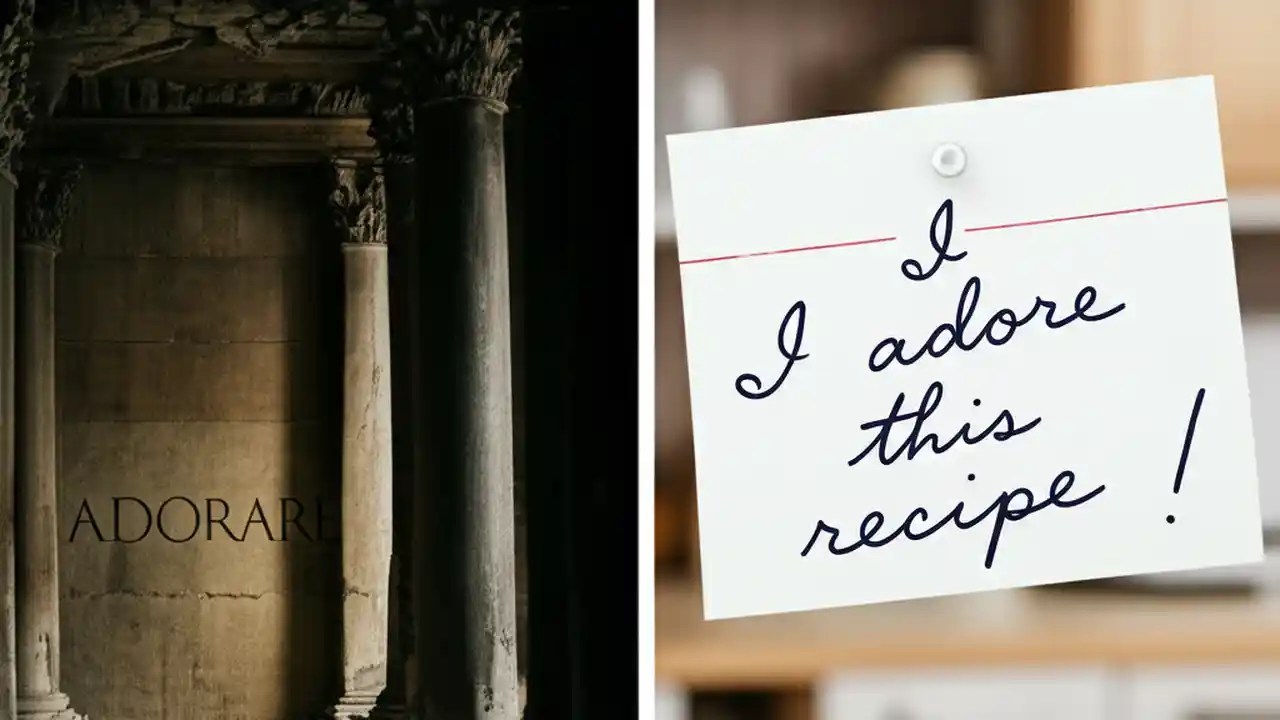 ADORARE
I
I adore
this
recipe!